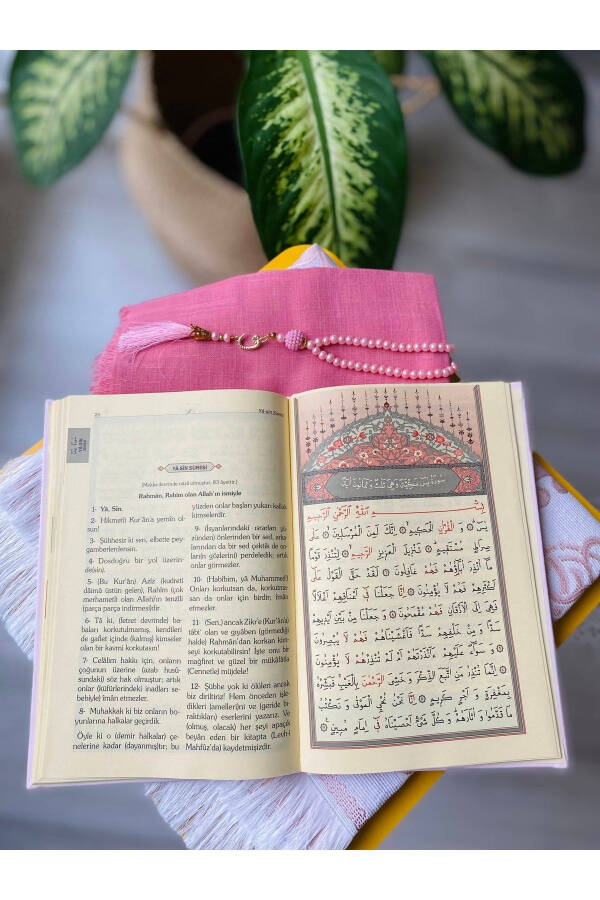 Yâ-sîn Sûresi
YÂ SÎN SÛRESİ
(Mekke devrinde nâzil olmuştur, 83 âyettir.)
Rahmân, Rahîm olan Allah'ın ismiyle
1- Yâ, Sîn.
2- Hikmetli Kur'ân'a yemin ol-
sun!
3- Şühhesiz ki sen, elbette pey-
gamberlerdensin.
4- Dosdoğru bir yol üzerin-
de(sin).
5- (Bu Kur'ân) Azîz (kudreti
dâimâ üstün gelen), Rahîm (çok
merhametli) olan Allah'ın tenzîli
(parça parça indirmesi)dir.
6- Tâ ki, (fetret devrinde) ba-
baları korkutulmamış, kendileri
de gaflet içinde (kalmış) kimseler
olan bir kavmi korkutasın!
7- Celâlim hakkı için, onların
çoğunun üzerine (azab husû-
sundaki) söz hak olmuştur; artık
onlar (küfürlerindeki inadları se-
bebiyle) îmân etmezler.
8- Muhakkak ki biz onların bo-
yunlarına halkalar geçirdik.
Öyle ki o (demir halkalar) çe-
nelerine kadar (dayanmış)tır; bu
yüzden onlar başları yukarı kalkık
kimselerdir.
9- (İsyanlarındaki ısrarları yü-
zünden) önlerinden bir sed, arka-
larından da bir sed çektik de on-
ların (gözlerini) perdeledik; artık
onlar görmezler.
10- (Habîbim, yâ Muhammed!)
Onları korkutsan da, korkutma-
san da onlar için birdir, îmân
etmezler.
11- (Sen,) ancak Zikr'e (Kur'ân'a)
tâbi' olan ve gıyâben (görmediği
halde) Rahmân'dan korkan kim-
seyi korkutabilirsin! İşte onu bir
mağfiret ve güzel bir mükâfâtla
(Cennetle) müjdele!
12- Şübhe yok ki ölüleri ancak
biz diriltiriz! Hem önceden işle-
dikleri (amelleri)ni ve (geride bı-
raktıkları) eserlerini yazarız. Ve
(olmuş, olacak) her şeyi apaçık
beyân eden bir kitapta (Levh-i
Mahfûz'da) kaydetmişizdir.
بِسْمِ اللّٰهِ الرَّحْمٰنِ الرَّحِيمِ
يسٓ وَالْقُرْاٰنِ الْحَكِيمِ اِنَّكَ لَمِنَ الْمُرْسَلِينَ عَلٰى
صِرَاطٍ مُسْتَقِيمٍ تَنْزِيلَ الْعَزِيزِ الرَّحِيمِ لِتُنْذِرَ قَوْمًا
مَٓا اُنْذِرَ اٰبَٓاؤُهُمْ فَهُمْ غَافِلُونَ لَقَدْ حَقَّ الْقَوْلُ عَلٰٓى
اَكْثَرِهِمْ فَهُمْ لَا يُؤْمِنُونَ اِنَّا جَعَلْنَا فِٓى اَعْنَاقِهِمْ اَغْلَالًا
فَهِىَ اِلَى الْاَذْقَانِ فَهُمْ مُقْمَحُونَ وَجَعَلْنَا مِنْ بَيْنِ اَيْدِيهِمْ
سَدًّا وَمِنْ خَلْفِهِمْ سَدًّا فَاَغْشَيْنَاهُمْ فَهُمْ لَا يُبْصِرُونَ
وَسَوَٓاءٌ عَلَيْهِمْ ءَاَنْذَرْتَهُمْ اَمْ لَمْ تُنْذِرْهُمْ لَا يُؤْمِنُونَ
اِنَّمَا تُنْذِرُ مَنِ اتَّبَعَ الذِّكْرَ وَخَشِىَ الرَّحْمٰنَ بِالْغَيْبِ فَبَشِّرْهُ
بِمَغْفِرَةٍ وَاَجْرٍ كَرِيمٍ اِنَّا نَحْنُ نُحْىِ الْمَوْتٰى وَنَكْتُبُ
مَا قَدَّمُوا وَاٰثَارَهُمْ وَكُلَّ شَىْءٍ اَحْصَيْنَاهُ فِٓى اِمَامٍ مُبِينٍ